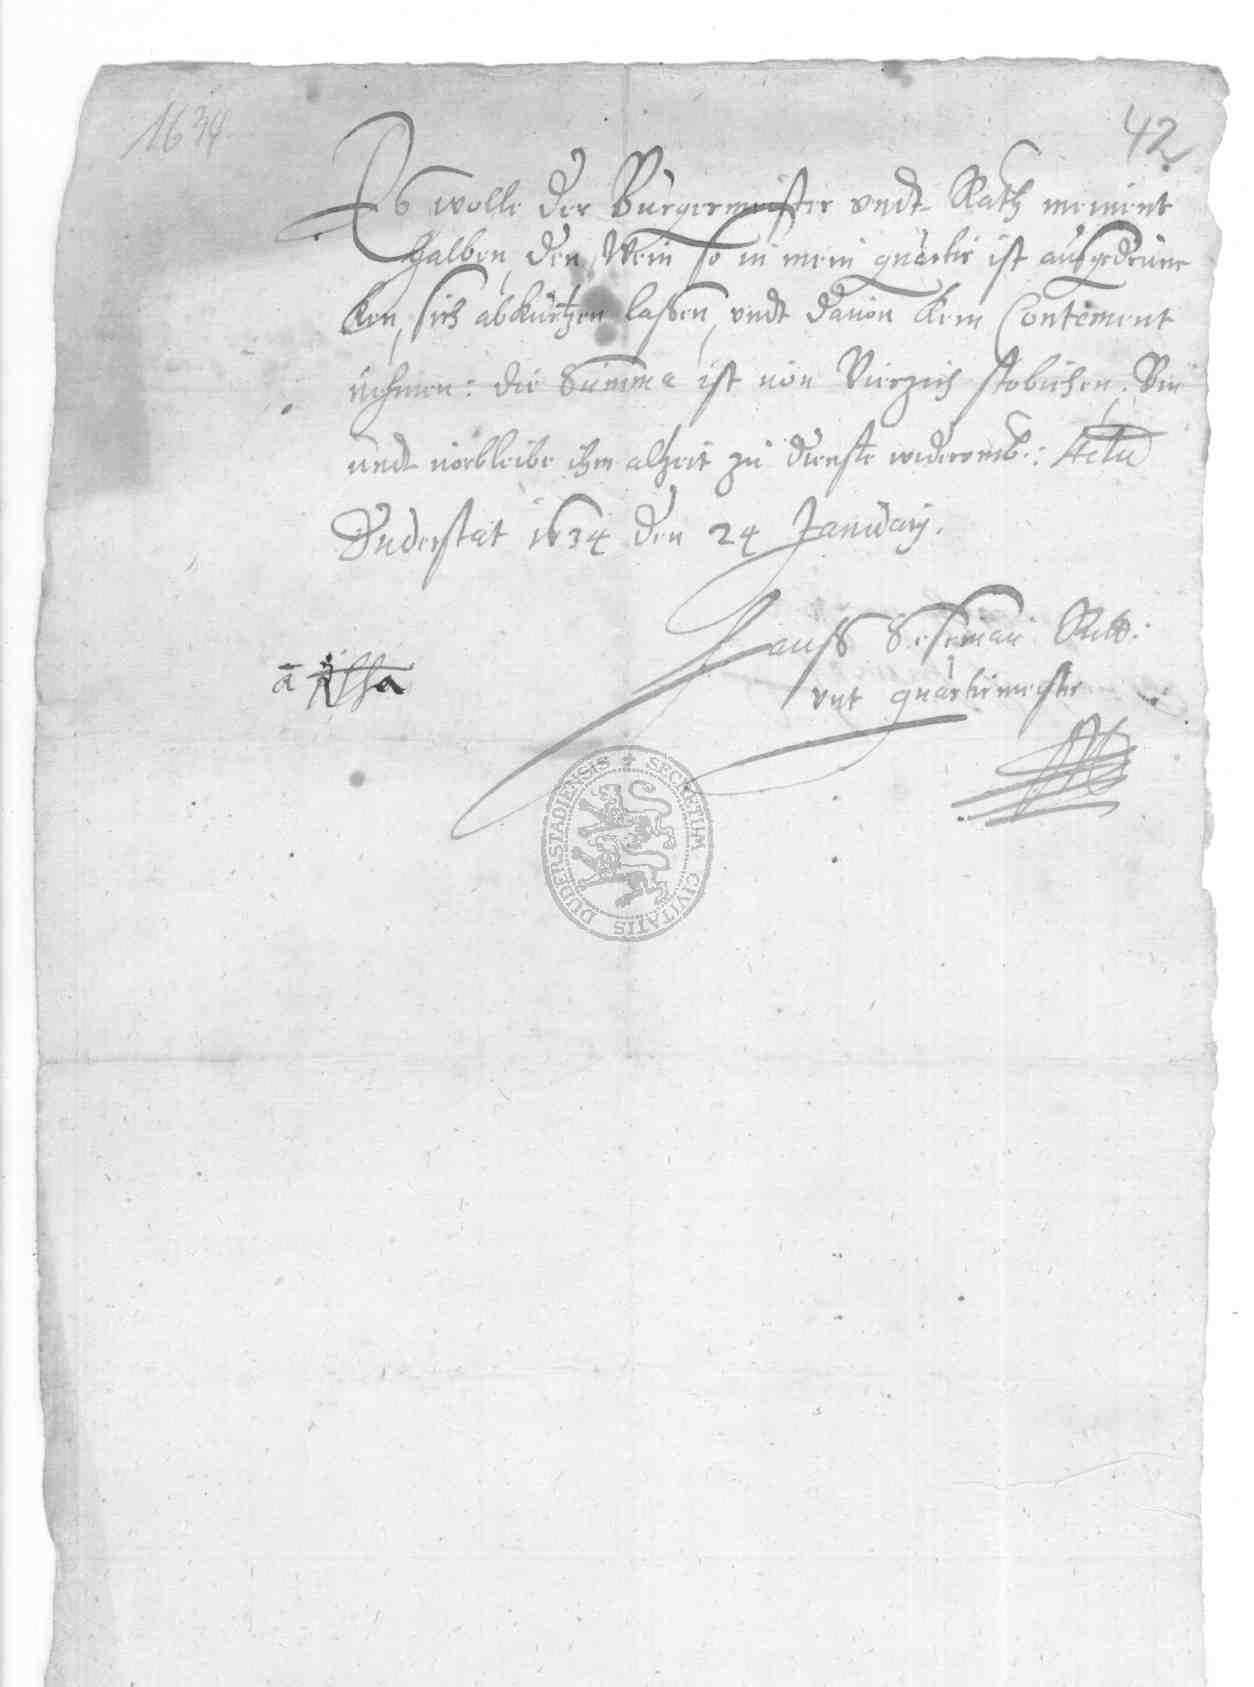 1634
42
Es wolle der Bürgermeister vndt Rath meinent
halben, den Wein so in mein quartir ist ausgedrunc
ken, sich abkürtzen laßen, vndt dauon kein Contement
nehmen: die Summa ist uon Vierzich stobichen. Bin
undt uorbleibe ihm alzeit zu dienste widerumb.: Actu
Duderstat 1634 den 24 January.
Hanß Ritt:
vnt quartirmeister
SECRETUM CIVITATIS DUDERSTADIENSIS